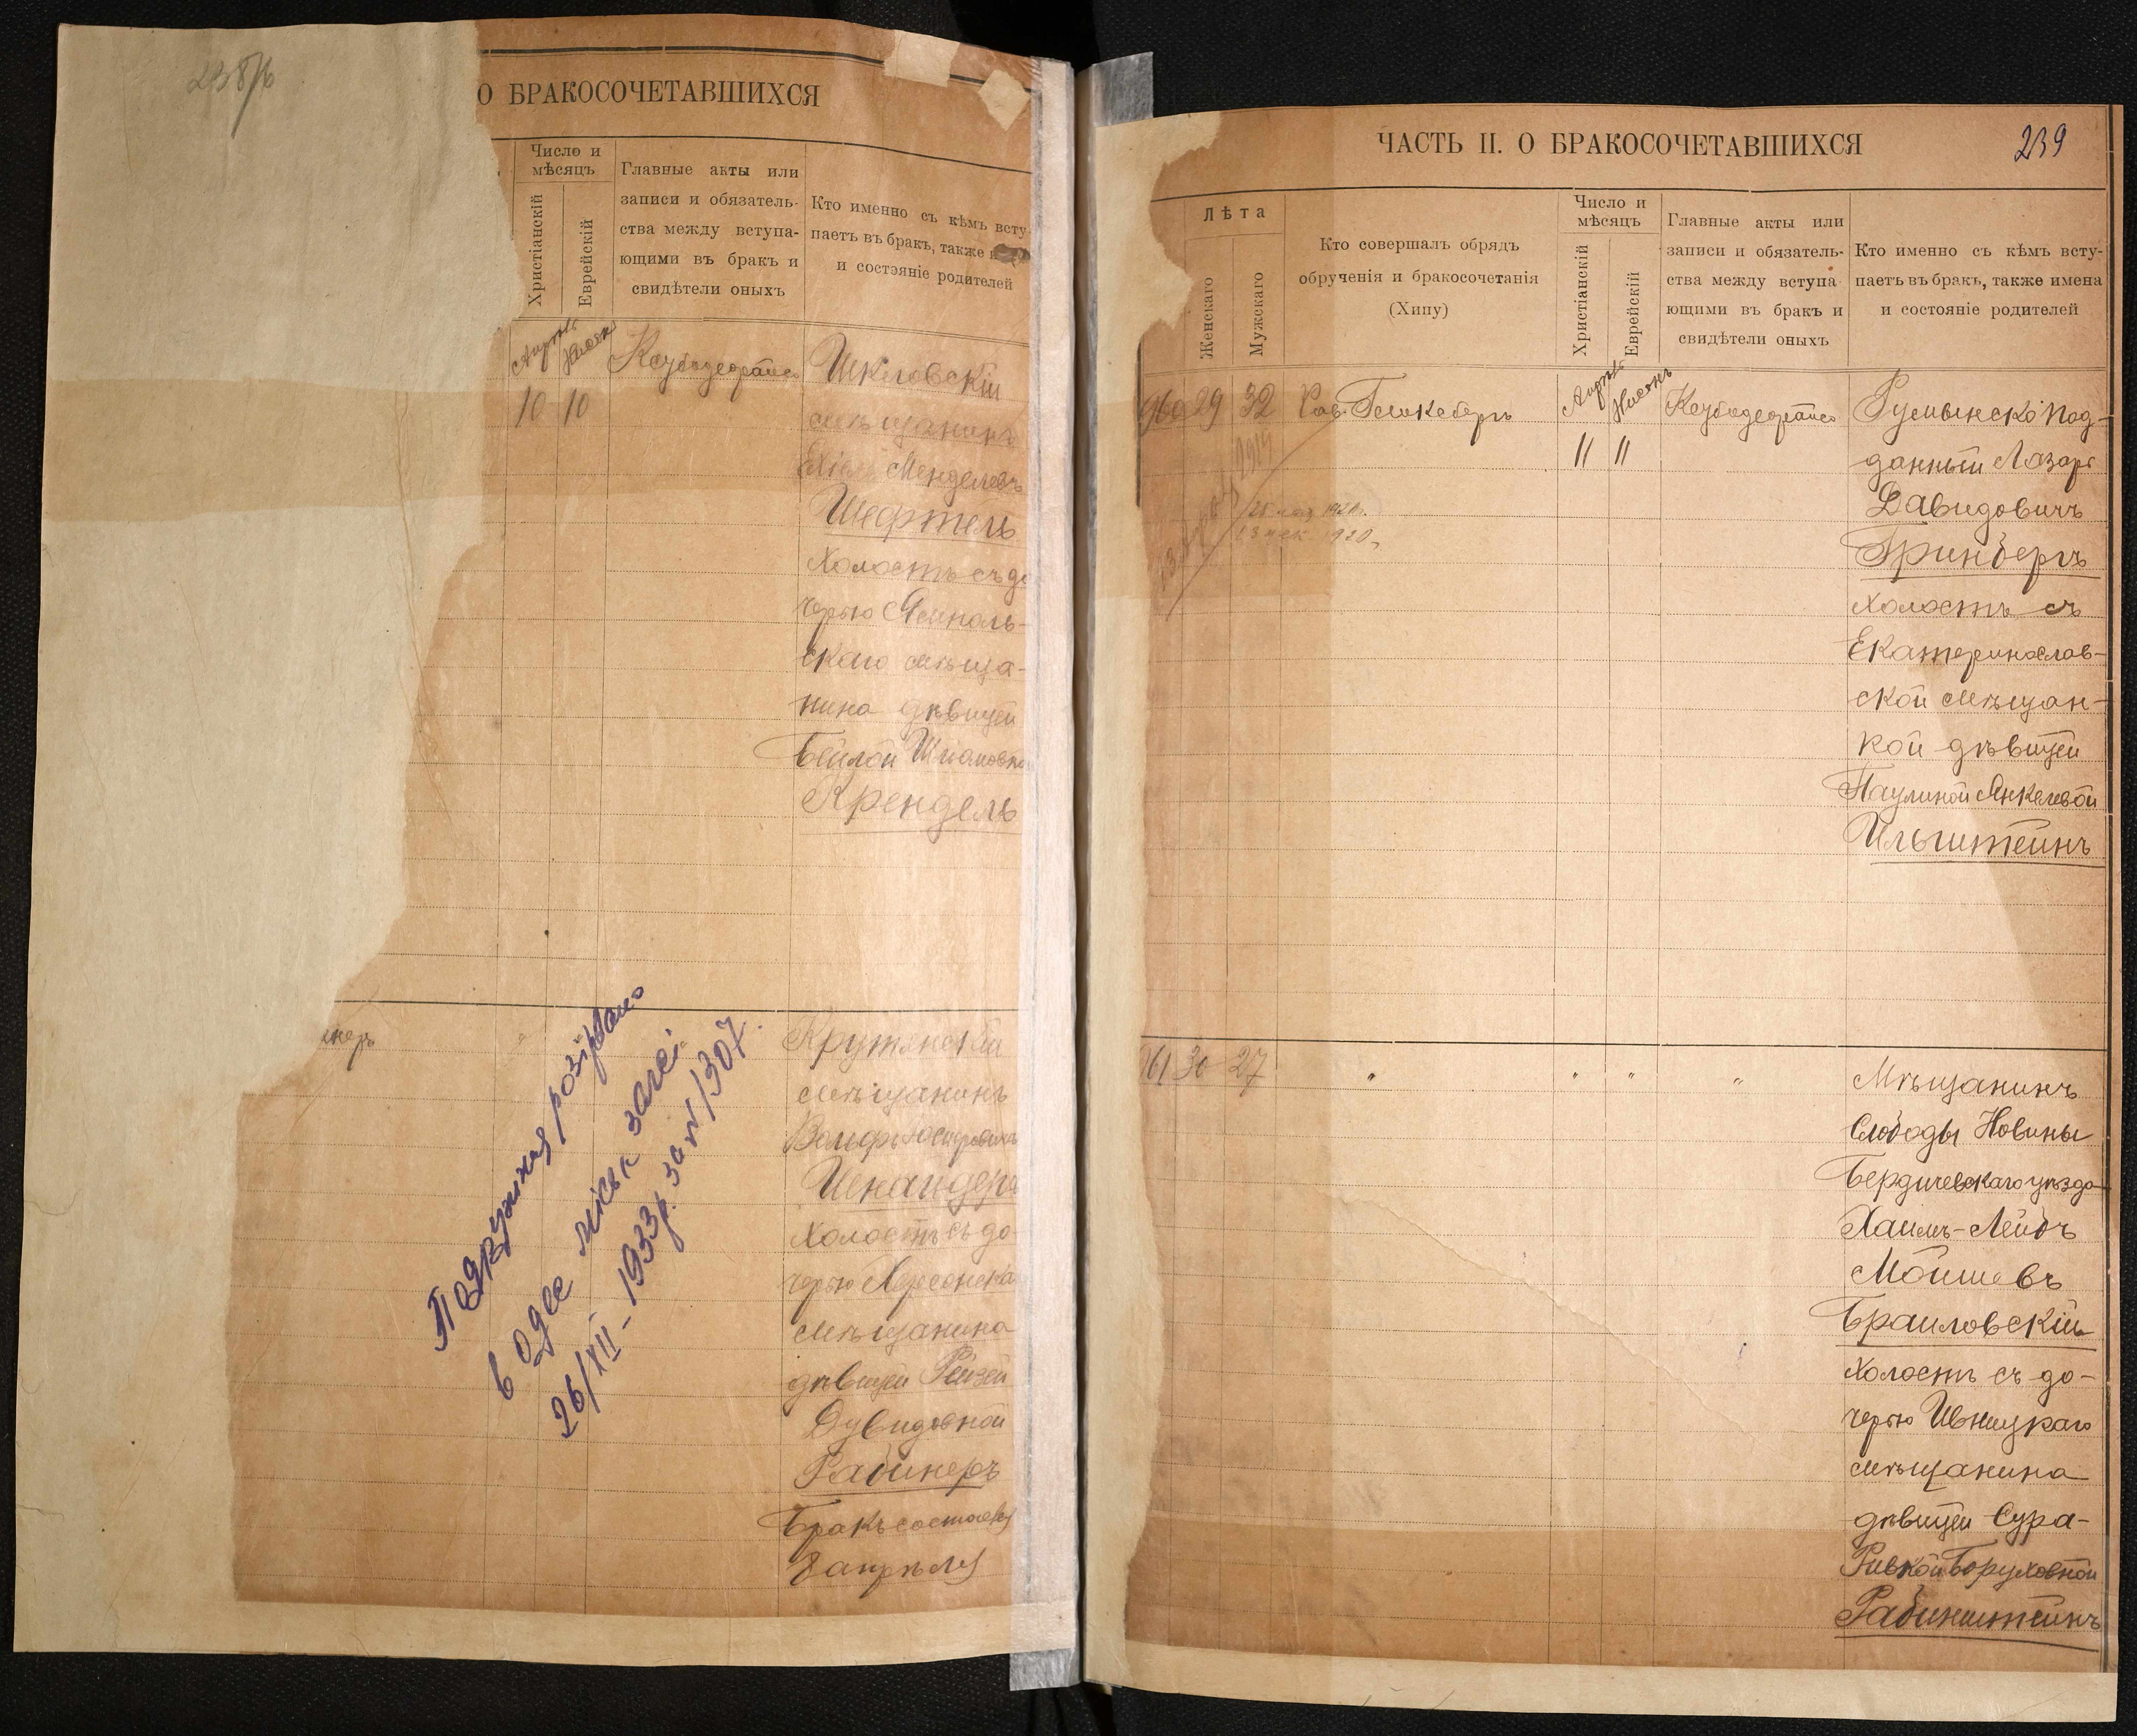 238/б
О БРАКОСОЧЕТАВШИХСЯ
Число и
мѣсяцъ
Христіанскій
Еврейскій
Главные акты или
записи и обязатель-
ства между вступа-
ющими въ бракъ и
свидѣтели оныхъ
Кто именно съ кѣмъ всту
паетъ въ бракъ, также
и состояніе родителей
Апрѣль
Нисонъ
10 10
Шкловскій
мѣщанинъ
Менделевъ
Шефтель
Холостъ съ до
черью Ямполь-
скаго мѣща-
нина дѣвицей
Бейлой
Крендель
неръ
"
мѣщанинъ
Вольфъ
Холостъ съ до
черью Херсонска
мѣщанина
дѣвицей Рейзей
Дувидовной
Рабинеръ
Бракъ состоялся
8 апрѣля
Подружжя розірвано
в Одес міськ загсі
26/XII - 1933 р. за № 1307.
ЧАСТЬ II. О БРАКОСОЧЕТАВШИХСЯ
239
Лѣта
Женскаго
Мужскаго
Кто совершалъ обрядъ
обрученія и бракосочетанія
(Хипу)
Число и
мѣсяцъ
Христіанскій
Еврейскій
Главные акты или
записи и обязатель-
ства между вступа-
ющими въ бракъ и
свидѣтели оныхъ
Кто именно съ кѣмъ всту-
паетъ въ бракъ, также имена
и состояніе родителей
960 29 32
Апрѣль
Нисонъ
11 11
Румынско под-
данный Лазарь
Давидовичъ
Гринбергъ
Холостъ съ
Екатеринослав-
ской мѣщан-
кой дѣвицей
Паулиной Янкелевой
Ильштейнъ
1920
961 30 27
" " " "
Мѣщанинъ
Слободы Новины
Бердичевскаго уѣзда
Хаимъ-Лейбъ
Мойшевъ
Браиловскій
Холостъ съ до-
черью Ивницкаго
мѣщанина
дѣвицей Сура-
Ривкой Боруховной
Рабинштейнъ